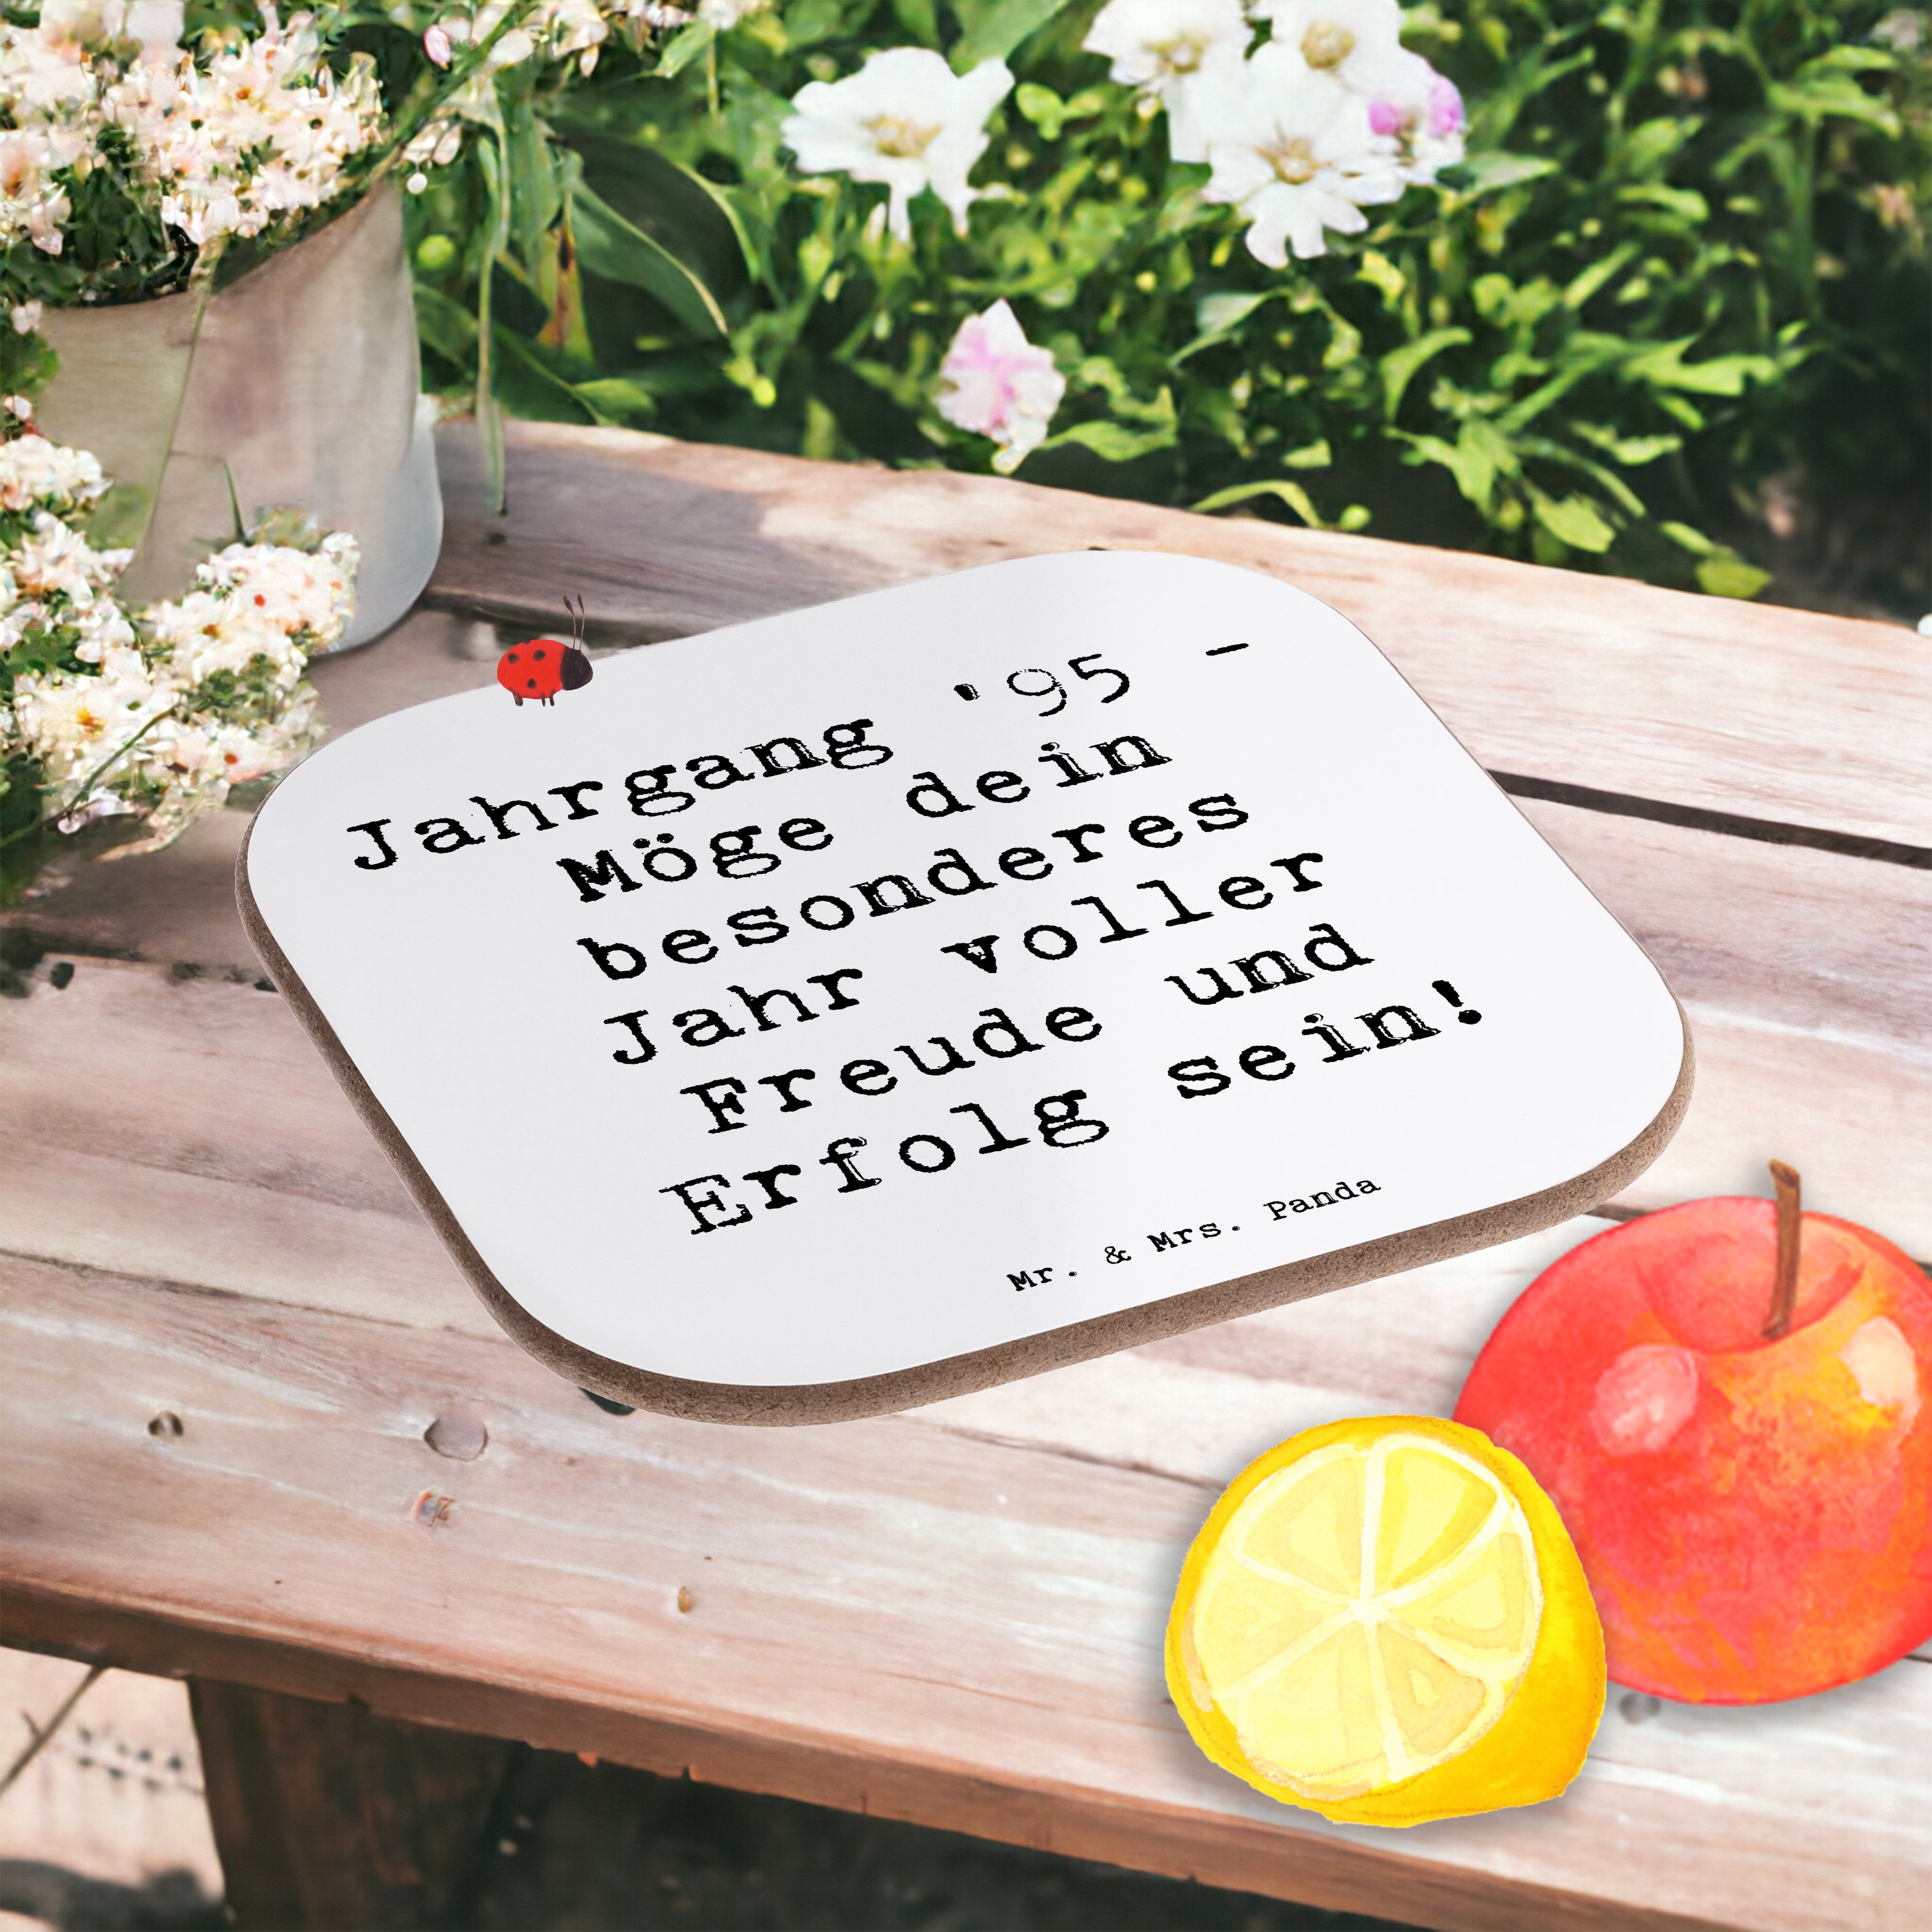 Jahrgang '95 -
Möge dein
besonderes
Jahr voller
Freude und
Erfolg sein!
Mr. & Mrs. Panda